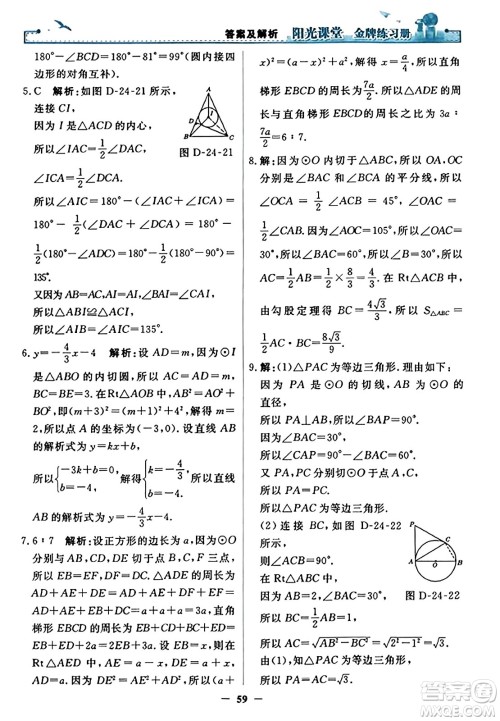 答案及解析 阳光课堂 金牌练习册
180°－∠BCD＝180°－110°＝70°(圆内接四
边形的对角互补).
5.C 解析:如图 D-24-21 所示,
连接 CI,
因为 I 是△ACD 的内心,
所以∠IAC＝1/2∠DAC,
∠ICA＝1/2∠DCA,
图 D-24-21
所以∠AIC＝180°－(∠IAC＋∠ICA)＝
180°－1/2(∠DAC＋∠DCA)＝180°－
1/2(180°－∠ADC)＝180°－1/2(180°－90°)＝
135°.
又因为 AB＝AC,∠BAI＝∠CAI,
所以△ABI≌△ACI,
所以∠AIB＝∠AIC＝135°.
6.y＝－4/3x－4 解析:设 AD＝m,因为⊙I
是△ABO 的内切圆,所以 AC＝AD＝m,
BC＝BE＝3.在 Rt△AOB 中,AO²＋BO²＝
AB²,即(m＋3)²＝(m＋1)²＋4²,解得 m＝2,
所以点 A 的坐标为(－3,0).设直线 AB
的解析式为 y＝kx＋b,
所以{－3k＋b＝0, b＝－4, 解得{k＝－4/3, b＝－4, 所以直线
AB 的解析式为 y＝－4/3x－4.
7.6∶7 解析:设正方形的边长为 a,因为⊙O
分别与 AB,AD,CD 切于 B,F,C 三点,
所以 EB＝EF,DF＝DC＝AD＝AB＝a,
所以△ADE 的周长为
AD＋AE＋DE＝AD＋AE＋EF＋DF＝
AD＋AE＋EB＋DC＝a＋a＋a＝3a.
设 EB＝x,则 AE＝a－x,DE＝a＋x,
所以 Rt△ADE 中,AD²＋AE²＝DE²,
即 a²＋(a－x)²＝(a＋x)²,
所以 x＝a/4,所以直角
梯形 EBCD 的周长为 7a/2.所以△ADE 的周
长与直角梯形 EBCD 的周长之比为 3a∶
7a/2＝6∶7.
8.解:因为⊙O 内切于△ABC,所以 OA,OC
分别是∠BAC 和∠BCA 的平分线,所以
∠OCA＝1/2∠BCA＝45°,∠OAC＝
1/2∠BAC.因为∠AOC＝105°,所以∠OAC＝
30°.所以∠BAC＝60°,所以∠B＝30°.所以
AC＝1/2AB＝1/2×8/3＝4/3.在 Rt△ABC 中,
由勾股定理得 BC＝4√3/3,所以 S△ABC＝
1/2AC·BC＝8√3/9.
9.解:(1)△PAC 为等边三角形.理由如下:
因为 PA 是⊙O 的切线,AB 为⊙O 的直
径,
所以 PA⊥AB,
所以∠BAP＝90°.
因为∠BAC＝30°,
所以∠CAP＝90°－30°＝60°.
因为 PA,PC 切⊙O 于点 A,C,
所以 PA＝PC,
所以△PAC 为等边三角形.
(2)连接 BC,如图 D-24-22
所示,则∠ACB＝90°.
因为 AB＝2,∠BAC＝30°,
所以 BC＝1/2AB＝1,
图 D-24-22
所以 AC＝√AB²－BC²＝√2²－1²＝√3.
因为△PAC 为等边三角形,所以 PA＝AC,
所以 PA＝√3.
59